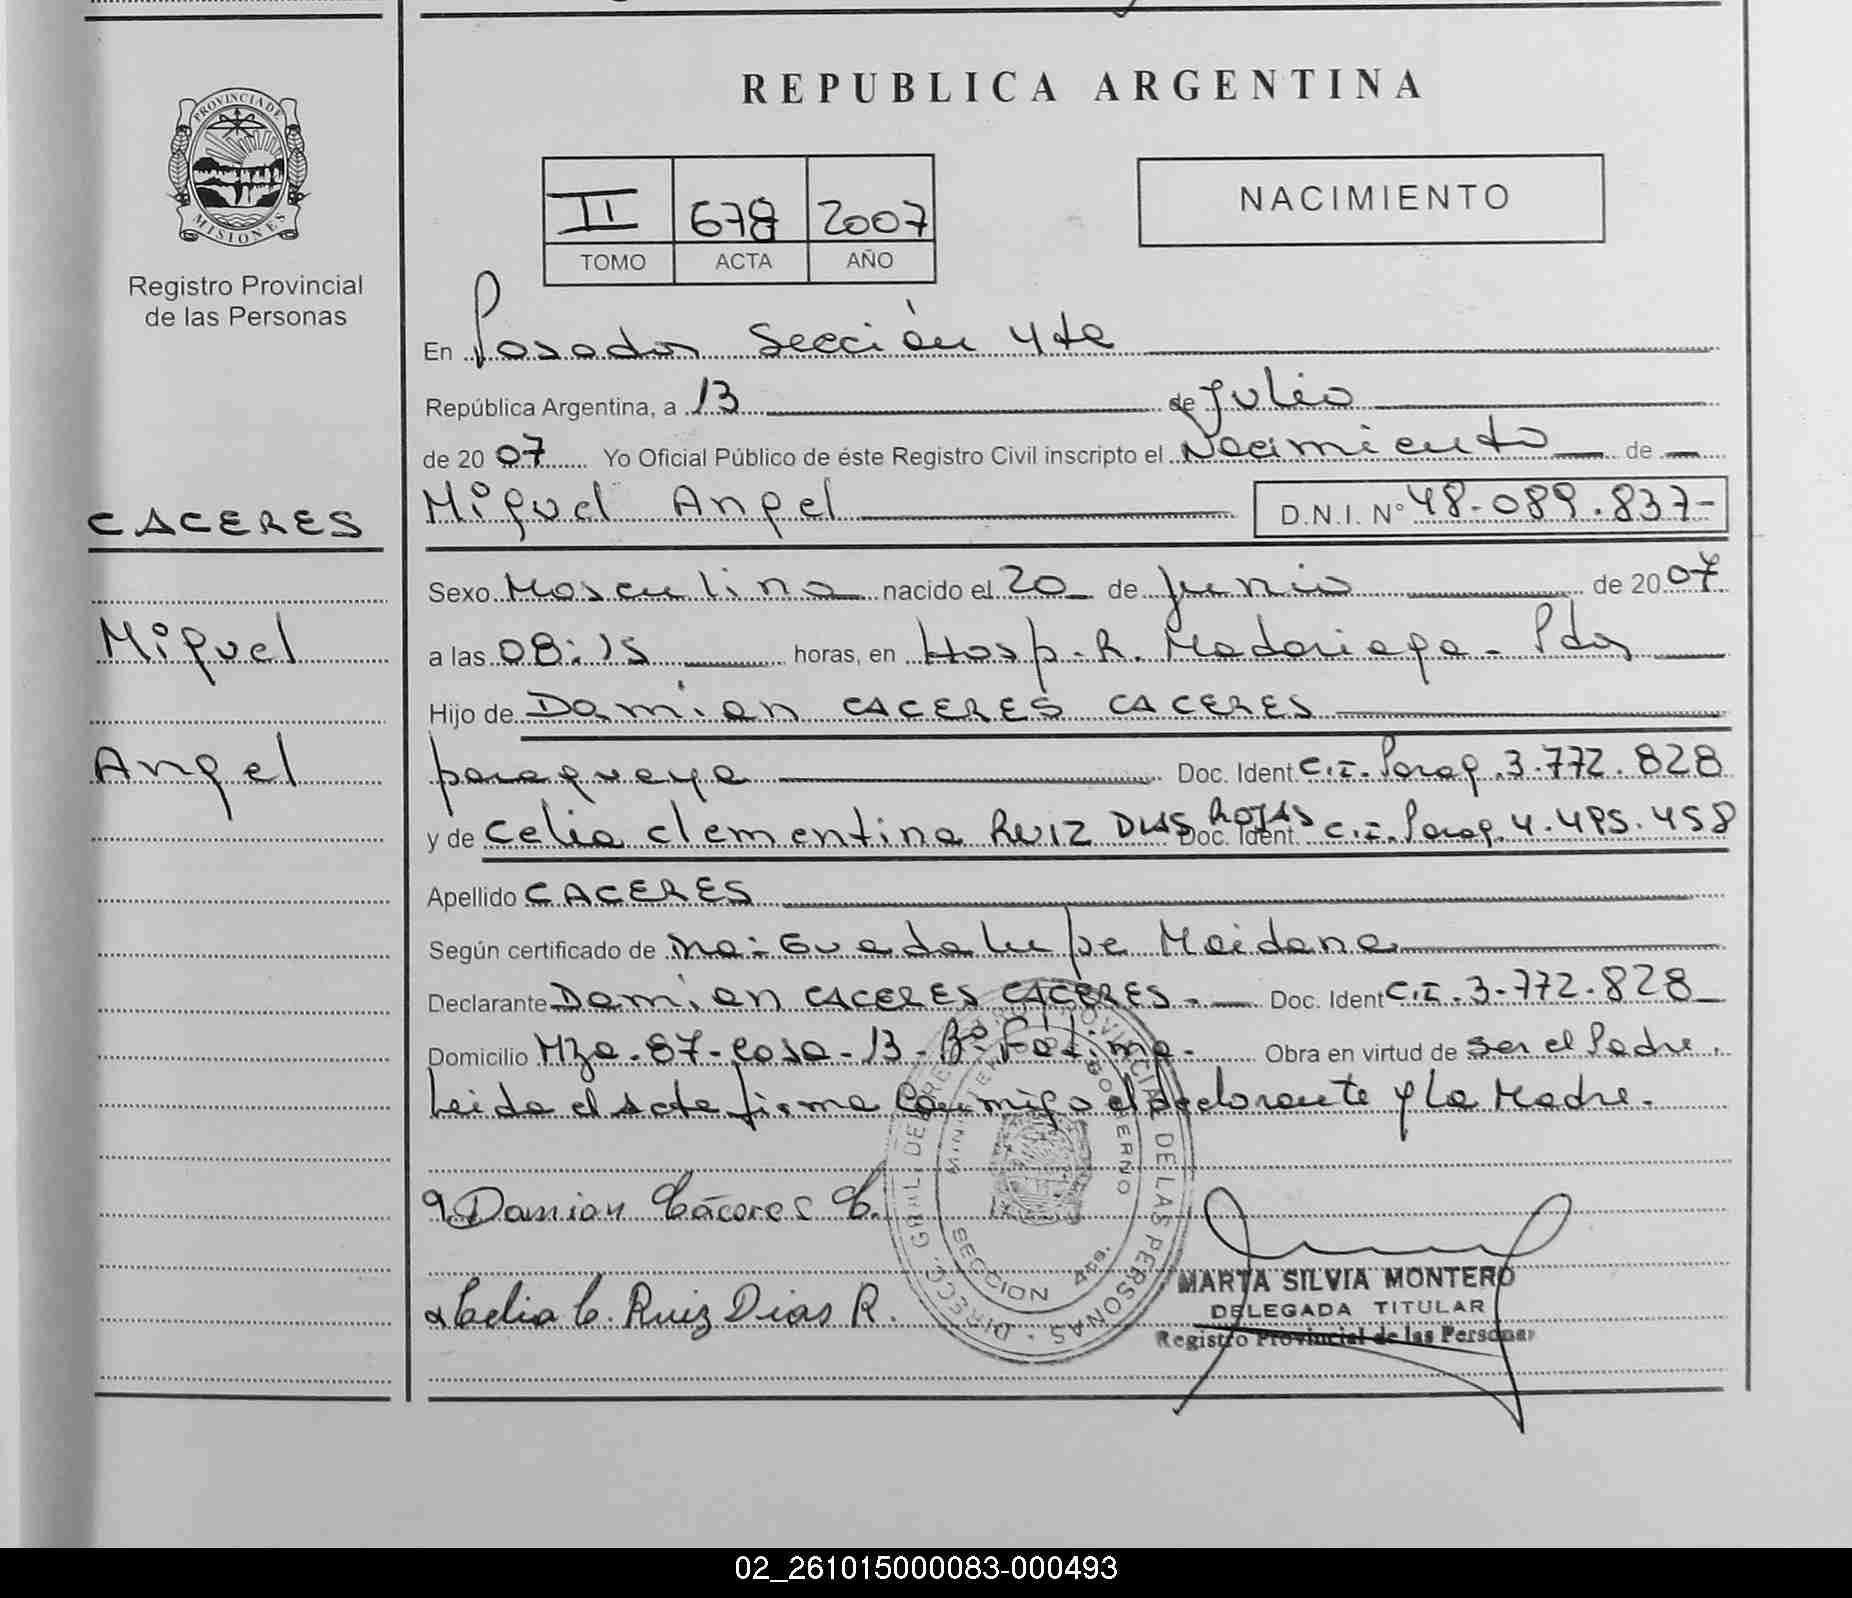 PROVINCIA DE
MISIONES
Registro Provincial
de las Personas
CACERES
Miguel
Angel
REPUBLICA ARGENTINA
II 678 2007
TOMO ACTA AÑO
NACIMIENTO
En Posadas Sección 4ta
República Argentina, a 13 de Julio
de 2007 Yo Oficial Público de éste Registro Civil inscripto el Nacimiento de
Miguel Angel D.N.I. N° 48.089.837-
Sexo Masculino nacido el 20 de Junio de 2007
a las 08:15 horas, en Hosp. R. Madariaga - Pdas
Hijo de Damián CACERES CACERES
paraguaya Doc. Ident. C.I. Parag. 3.772.828
y de Celia Clementina RUIZ DIAS ROJAS Doc. Ident. C.I. Parag. 4.495.458
Apellido CACERES
Según certificado de Guadalupe Maidana
Declarante Damián CACERES CACERES.- Doc. Ident C.I. 3.772.828
Domicilio Mza. 87 - Casa - 13 - B° Fátima. Obra en virtud de ser el Padre.
Leida el acta firma conmigo el declarante y la Madre.
Damian Cáceres C.
Celia C. Ruiz Dias R.
DIRECC. GRAL. DE REGISTRO PROVINCIAL DE LAS PERSONAS
MINISTERIO DE GOBIERNO
SECCION 4ta.
MARTA SILVIA MONTERO
DELEGADA TITULAR
Registro Provincial de las Personas
02_261015000083-000493